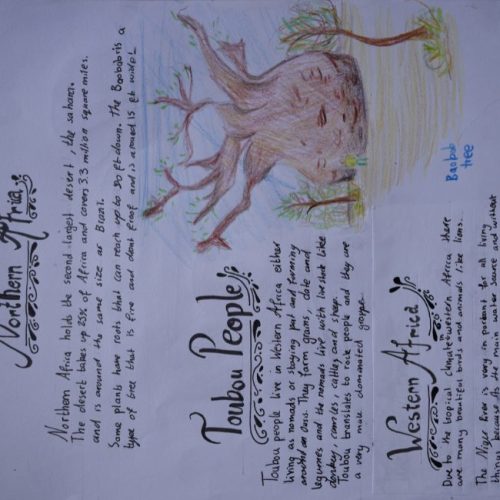 Northern Africa
Northern Africa holds the second largest desert, the saharn.
The desert takes up 25% of Africa and covers 3.3 million square miles.
and is around the same size as Brazil.
Some plants have roots that can reach up to 80 ft down. the Baobab is a
type of tree that is fire and drout proof and is around 15 ft wide!
Baobab
tree
Toubou People
Toubou people live in Western Africa either
living as nomads or staying put and farming
around an oasis. They farm grains, date and
legumes and the nomads live with livestock like
donkey, camles, cattles, and sheep.
Toubou translates to rock people and they are
a very male dominated group.
Western Africa
Due to the tropical climate western Africa there
are many beautiful birds and animals like lions.
The Niger River is very important for all living
things because its the main water source and without